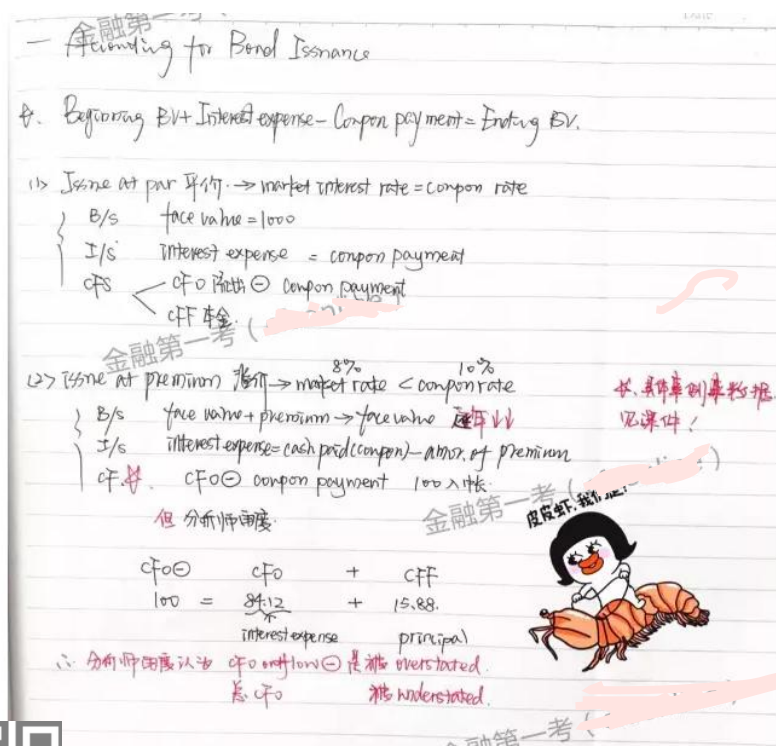 金融第一考
一 Accounting for Bond Issnance
Beginning BV + Interest expense - Conpon payment = Ending BV.
(1) Issne at par 平价 → market interest rate = conpon rate
B/S face value = 1000
I/S interest expense = conpon payment
CFS CFO 流出 ⊖ conpon payment
CFF 本金
金融第一考 (
8% 10%
(2) Issne at preminm 溢价 → market rate < conpon rate
B/S face valne + preminm → face valne 逐年↓↓
I/S interest expense = cash paid (conpon) - amor. of preminm
CF. CFO ⊖ conpon payment 100 入帐.
具体案例
见课件!
但 分析师角度
金融第一考 (
皮皮虾,我们走!
CFO⊖ CFO + CFF
100 = 84.12 + 15.88.
interest expense principal
∴ 分析师角度认为 CFO outflow ⊖ 是被 overstated.
总 CFO 被 understated.
金融第一考 (